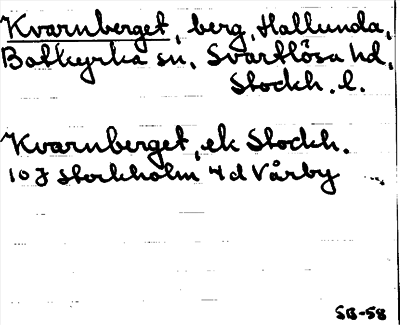 Kvarnberget, berg, Hallunda,
Botkyrka sn, Svartlösa hd,
Stockh. l.
Kvarnberget, ek Stockh.
10 J Stockholm 4 d Vårby
SB-58